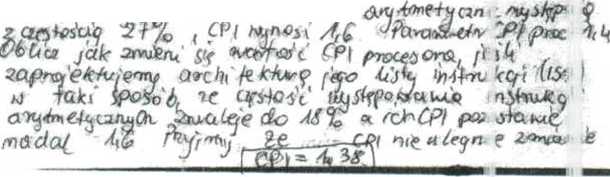 arytmetyczn występ
z częstością 27%, CPI wynosi 1,6 Parametr CPI proc 1,4
Oblicz jak zmieni się wartość CPI procesora, jeśli
zaprojektujemy architekturę jego listy instrukcji (is
w taki sposób, że częstość występowania instrukcj
arytmetycznych zmaleje do 18% a ich CPI pozostanie
nadal 1,6 Przyjmij że CPI nie ulegnie zmianie
CPI = 1,38